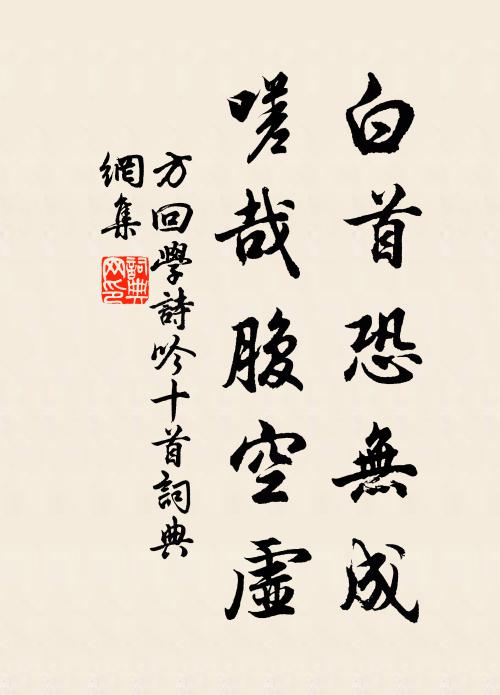 白首恐無成
嗟哉腹空虛
方回學詩吟十首詞典
網集
詞典
网印